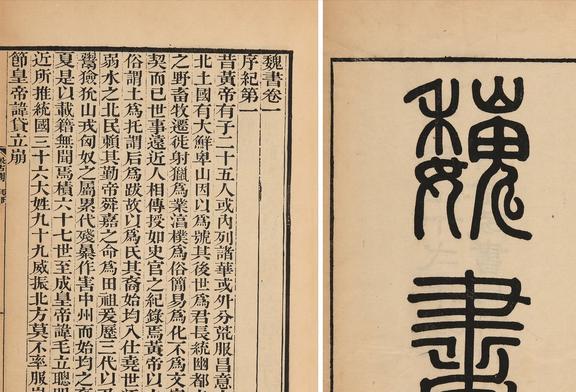 魏書
魏書卷一
序紀第一
昔黃帝有子二十五人或內列諸華或外分荒服昌意
北土國有大鮮卑山因以爲號其後世爲君長統幽都
之野畜牧遷徙射獵爲業淳樸爲俗簡易爲化不爲文
契而已世事遠近人相傳授如史官之紀錄焉黃帝以
俗謂土爲托謂后爲跋故以爲氏其裔始均入仕堯世
弱水之北民賴其勤帝舜嘉之命爲田祖爰歷三代以
鬻獫狁山戎匈奴之屬累代殘暴作害中州而始均之
夏是以載籍無聞焉積六十七世至成皇帝諱毛立聰
近所推統國三十六大姓九十九威振北方莫不率服
節皇帝諱貸立崩